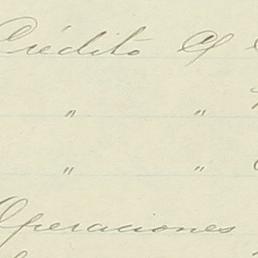 Crédito
" "
" "
Operaciones